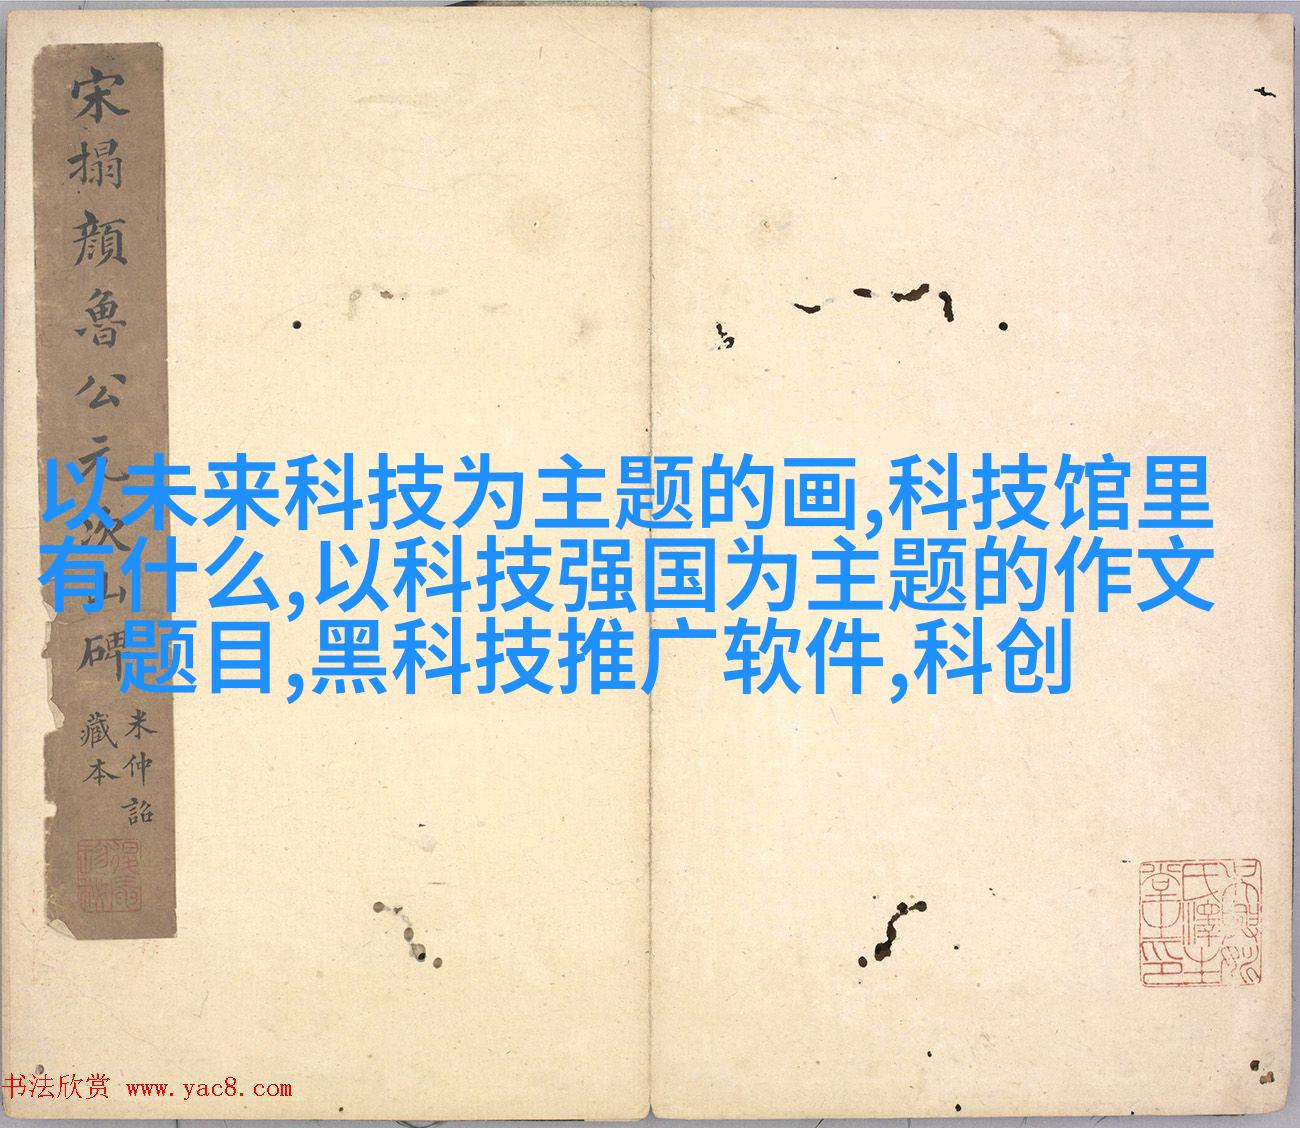 宋搨顔魯公元次山碑
米仲詔
藏本
以未来科技为主题的画,科技馆里
有什么,以科技强国为主题的作文
题目,黑科技推广软件,科创
书法欣赏 www.yac8.com